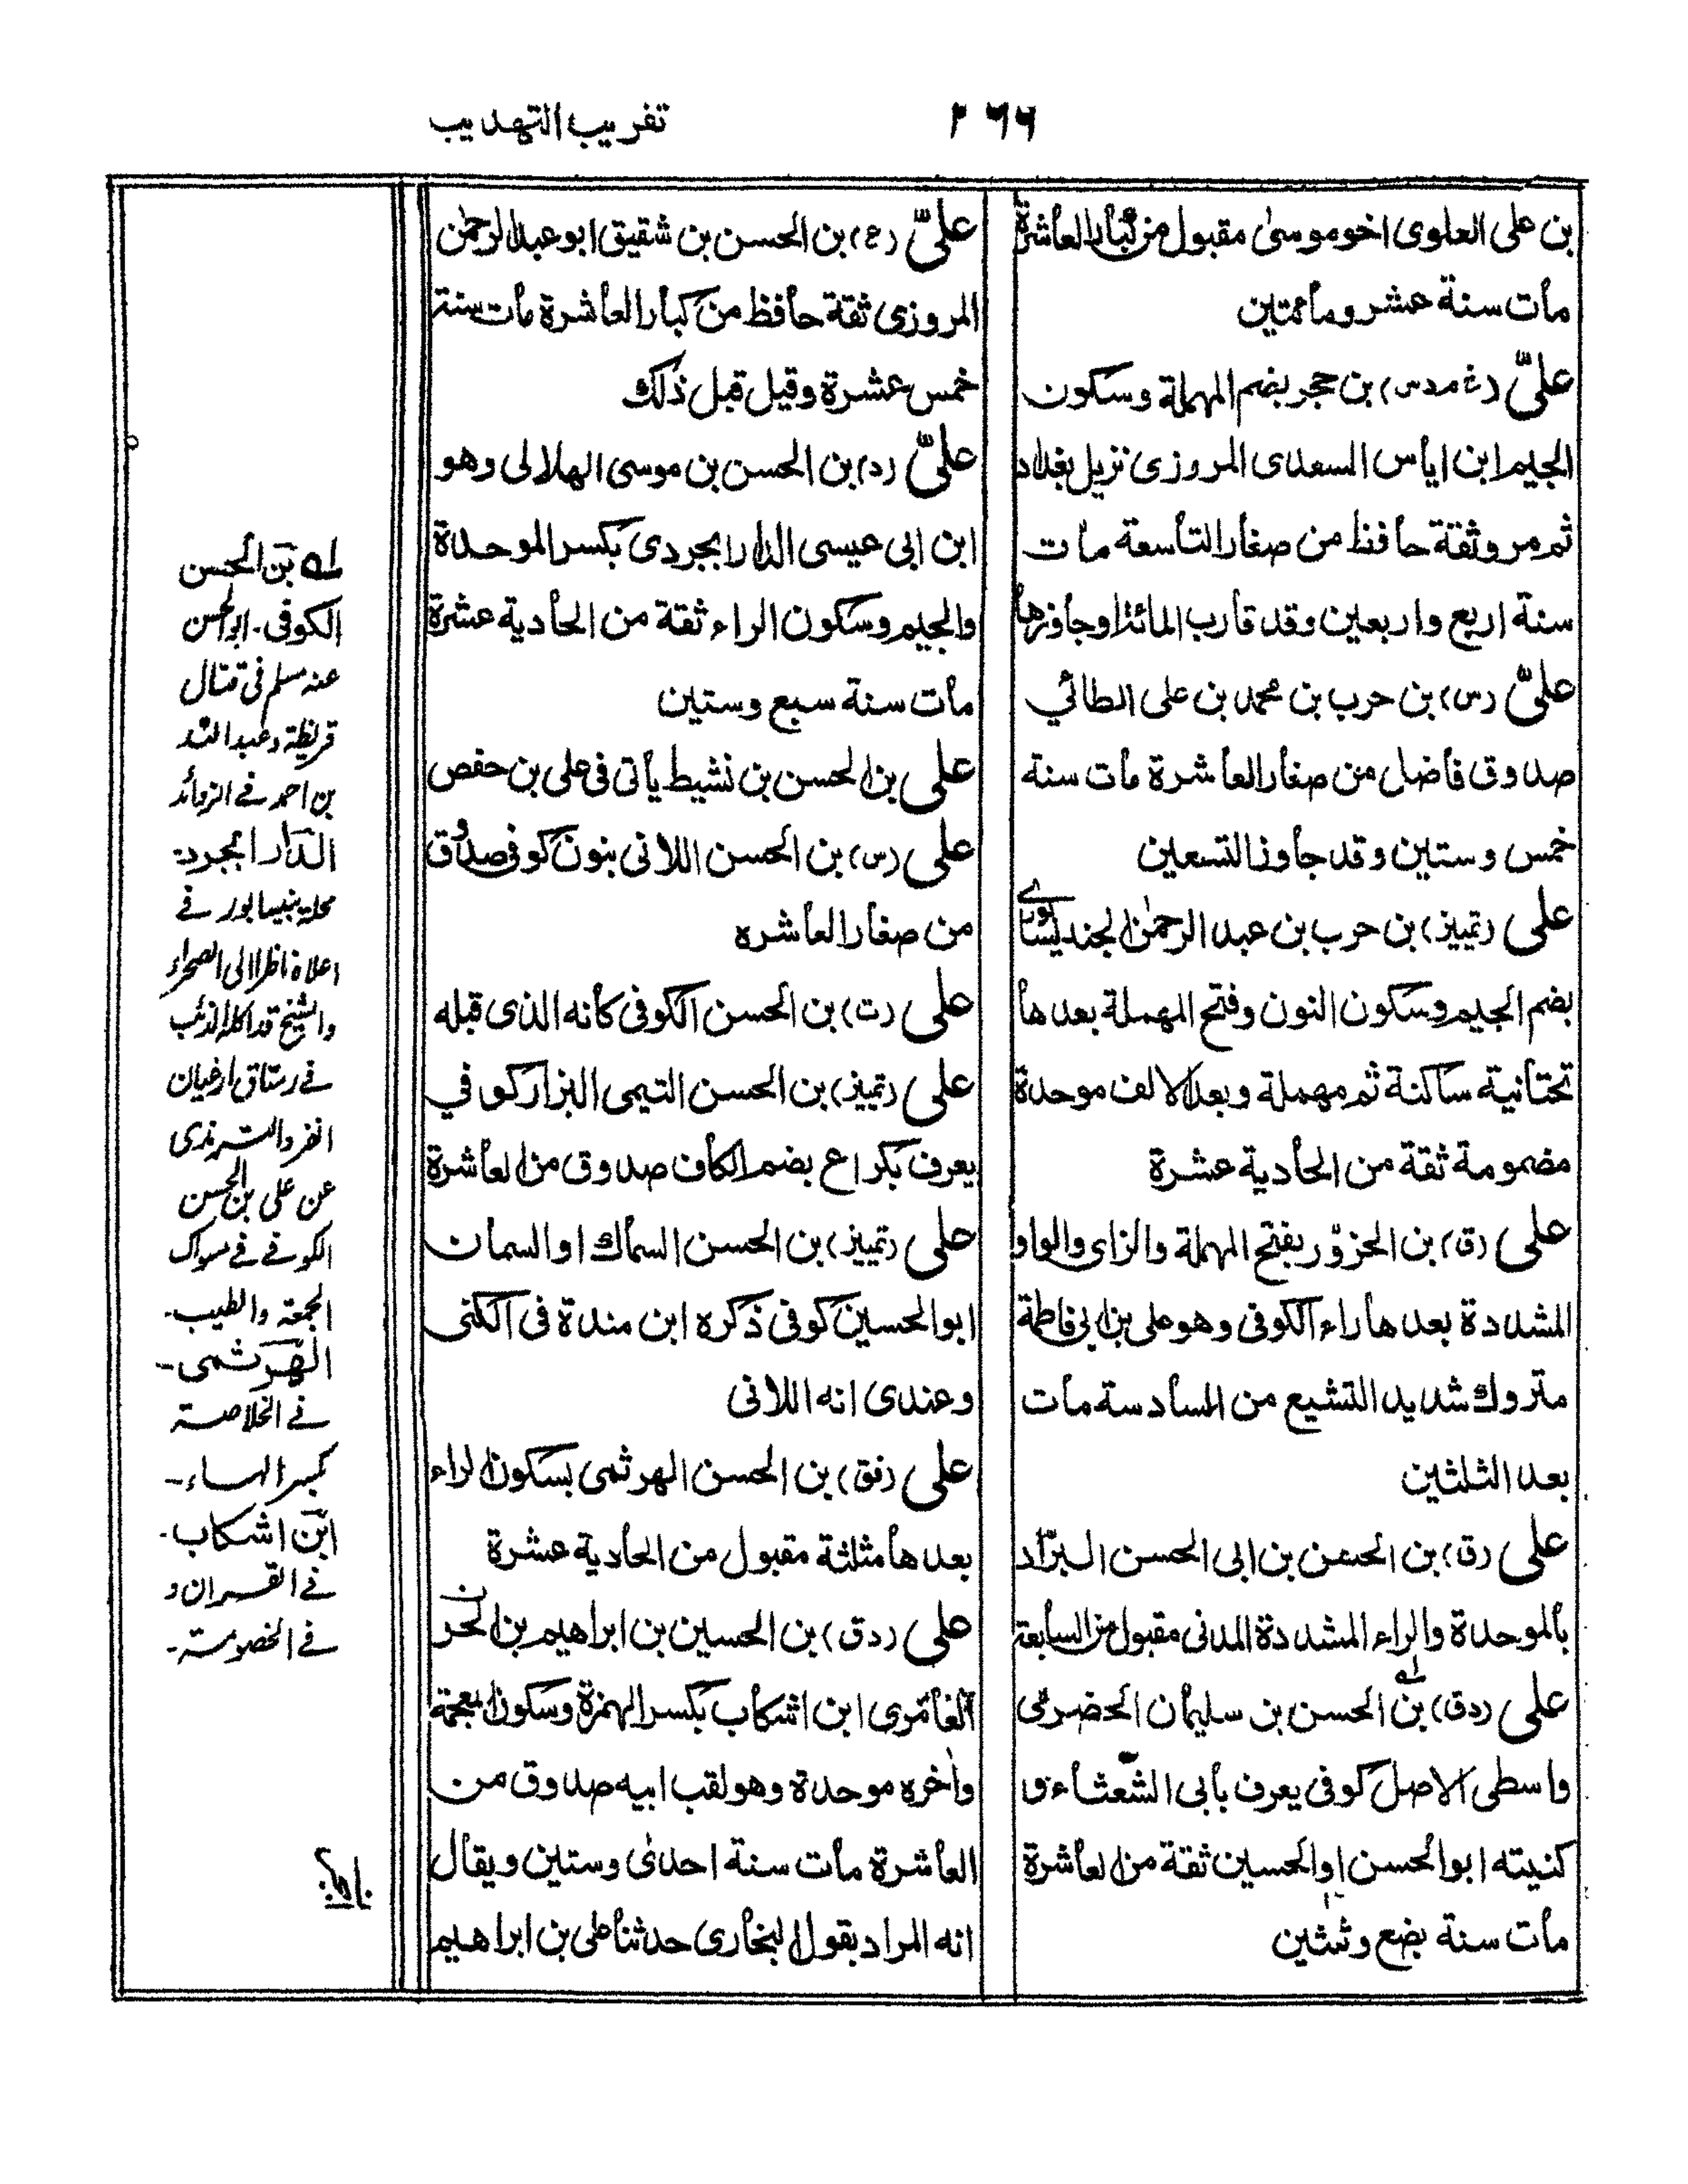 ٢٦٦
تقريب التهذيب
بن على العلوى اخو موسى مقبول من كبار العاشرة
مات سنة عشر ومائتين
علىّ (خ م د س) بن حجر بضم المهملة وسكون
الجيم ابن اياس السعدى المروزى نزيل بغداد
ثم مرو ثقة حافظ من صغار التاسعة مات
سنة اربع واربعين وقد قارب المائة او جاوزها
علىّ (س) بن حرب بن محمد بن على الطائي
صدوق فاضل من صغار العاشرة مات سنة
خمس وستين وقد جاوز التسعين
على (تمييز) بن حرب بن عبد الرحمن الجنديسابورى
بضم الجيم وسكون النون وفتح المهملة بعدها
تحتانية ساكنة ثم مهملة وبعد الالف موحدة
مضمومة ثقة من الحادية عشرة
على (ق) بن الحزوّر بفتح المهملة والزاى والواو
المشددة بعدها راء الكوفى وهو على بن ابى فاطمة
متروك شديد التشيع من السادسة مات
بعد الثلثين
على (ق) بن الحسن بن ابى الحسن البرّاد
بالموحدة والراء المشددة المدنى مقبول من السابعة
على (د ق) بن الحسن بن سليمان الحضرمى
واسطى الاصل كوفى يعرف بأبى الشعثاء و
كنيته ابو الحسن او الحسين ثقة من العاشرة
مات سنة بضع وثلثين
علىّ (ع) بن الحسن بن شقيق ابو عبد الرحمن
المروزى ثقة حافظ من كبار العاشرة مات سنة
خمس عشرة وقيل قبل ذلك
علىّ (د) بن الحسن بن موسى الهلالى وهو
ابن ابى عيسى الدارابجردى بكسر الموحدة
والجيم وسكون الراء ثقة من الحادية عشرة
مات سنة سبع وستين
على بن الحسن بن نشيط يأتى فى على بن حفص
على (س) بن الحسن اللانى بنون كوفى صدوق
من صغار العاشره
على (ت) بن الحسن الكوفى كأنه الذى قبله
على (تمييز) بن الحسن التيمى البزار كوفي
يعرف بكراع بضم الكاف صدوق من العاشرة
على (تمييز) بن الحسن السماك او السمان
ابو الحسين كوفى ذكره ابن مندة فى الكنى
وعندى انه اللانى
على (فق) بن الحسن الهرثمى بسكون الراء
بعدها مثلثة مقبول من الحادية عشرة
على (د ق) بن الحسين بن ابراهيم بن الحر
العامرى ابن اشكاب بكسر الهمزة وسكون المعجمة
واخره موحدة وهو لقب ابيه صدوق من
العاشرة مات سنة احدى وستين ويقال
انه المراد بقول البخارى حدثنا على بن ابراهيم
له بن الحسن
الكوفى۔ ابو الحسن
عنه مسلم فى قتال
قريظة وعبد الله
بن احمد فے الزوائد
الدارابجرد۔
محلة بنيسابور فے
اعلاه ناظرا الى الصحراء
والشيخ قد اكله الذئب
فے رستاق ارغيان
انفرد الترمذى
عن على بن الحسن
الكوفے فے سواك
الجمعة والطيب۔
الهرثمى۔
فے الخلاصة
بكسر الهاء۔
ابن اشكاب۔
فے القرآن و
فے الخصومة۔